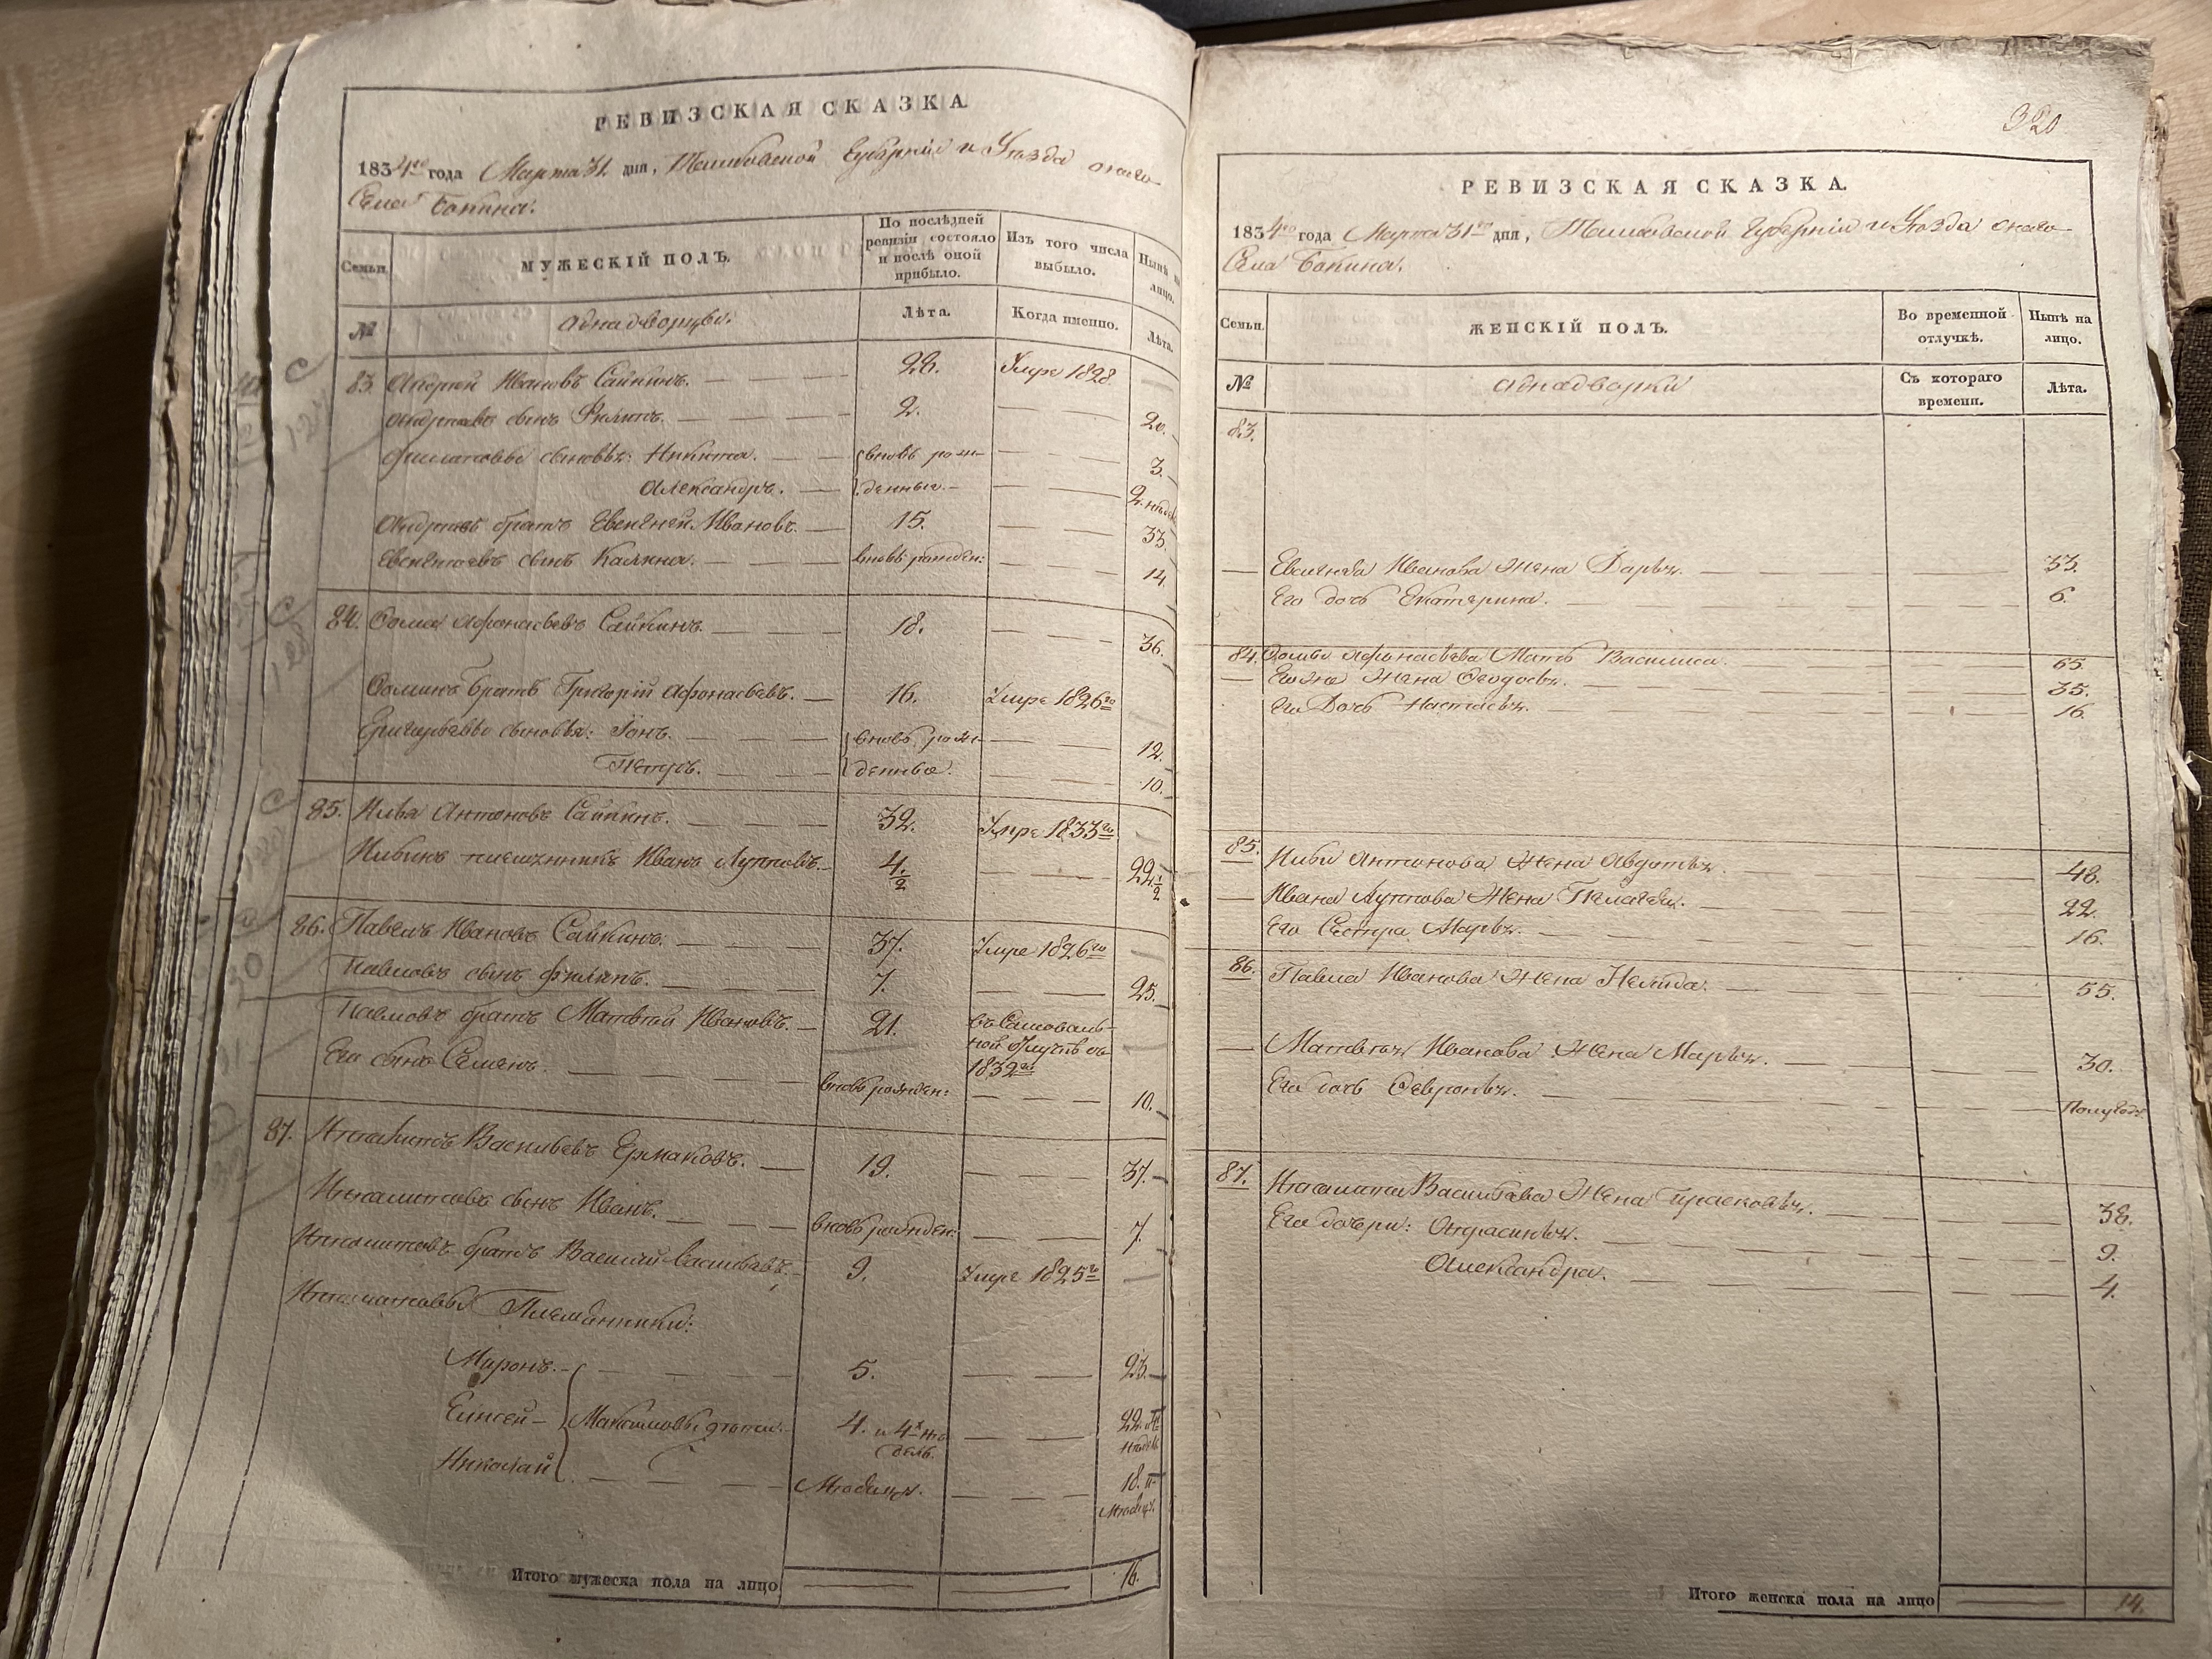 РЕВИЗСКАЯ СКАЗКА
1834го года Марта 31 дня, Тамбовской Губернии и Уѣзда онаго
Села Бокина.
Семьи.
МУЖЕСКІЙ ПОЛЪ.
По послѣдней ревизіи состояло и послѣ оной прибыло.
Изъ того числа выбыло.
Нынѣ на лицо.
№
однадворцы.
Лѣта.
Когда именно.
Лѣта.
83. Андрей Ивановъ Сайкинъ. 26. Умре 1828
Андреевъ сынъ Филипъ. 2. 20.
Филиповы сыновья: Никита. вновь рож- 3.
Александръ. денные. 2. недѣл
Андреевъ братъ Евсигней Ивановъ. 15. 33.
Евсигнеевъ сынъ Калина. вновь рожден: 14.
84. Фома Афонасьевъ Сайкинъ. 18. 36.
Фоминъ братъ Григорій Афонасьевъ. 16. Умре 1826го
Григорьевы сыновья: Іонъ. вновь рож- 12.
Петръ. денные. 10.
85. Илья Антоновъ Сайкинъ. 32. Умре 1833го
Ильинъ племянникъ Иванъ Лупповъ. 4. 1/2 22. 1/2
86. Павелъ Ивановъ Сайкинъ. 37. Умре 1826го
Павловъ сынъ Филипъ. 7. 25.
Павловъ братъ Матвѣй Ивановъ. 21. въ Самоволь-
ной отлучкѣ съ
1832го
Его сынъ Семенъ. вновь рожден: 10.
87. Ипполитъ Васильевъ Ермаковъ. 19. 37.
Ипполитовъ сынъ Иванъ. вновь рожден: 7.
Ипполитовъ братъ Василий Васильевъ. 9. Умре 1825го
Ипполитовы Племянники:
Миронъ. 5. 23.
Елисей Максимовы дѣти. 4. и 4х не 22. и 4
дель. недѣль
Николай Мѣсяца. 18. и
Мѣсяцъ.
Итого мужеска пола на лицо 16.
320
РЕВИЗСКАЯ СКАЗКА.
1834го года Марта 31го дня, Тамбовской Губерніи и Уѣзда онаго
Села Бокина.
Семьи.
ЖЕНСКІЙ ПОЛЪ.
Во временной отлучкѣ.
Нынѣ на лицо.
№
однадворки
Съ котораго времени.
Лѣта.
83.
Евсигнѣя Иванова Жена Дарья. 33.
Его дочь Екатерина. 6.
84. Фомы Афонасьева Мать Василиса. 65.
Его же Жена Феодосья. 35.
Его Дочь Настасья. 16.
85. Ильи Антонова Жена Авдотья. 48.
Ивана Луппова Жена Пелагея. 22.
Его Сестра Марья. 16.
86. Павла Иванова Жена Нелида. 55.
Матвея Иванова Жена Марья. 30.
Его дочь Февронья. Полугода
87. Ипполита Васильева Жена Прасковья. 38.
Его дочери: Офросинья. 9.
Александра. 4.
Итого женска пола на лицо 14.